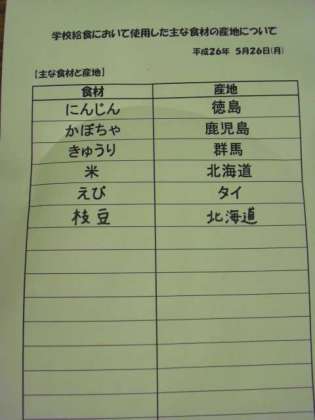 学校給食において使用した主な食材の産地について
平成26年 5月26日(月)
【主な食材と産地】
食材 産地
にんじん 徳島
かぼちゃ 鹿児島
きゅうり 群馬
米 北海道
えび タイ
枝豆 北海道